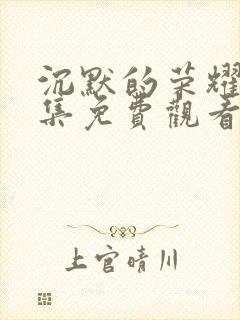 沉默的荣耀
集免費觀看
上官晴川